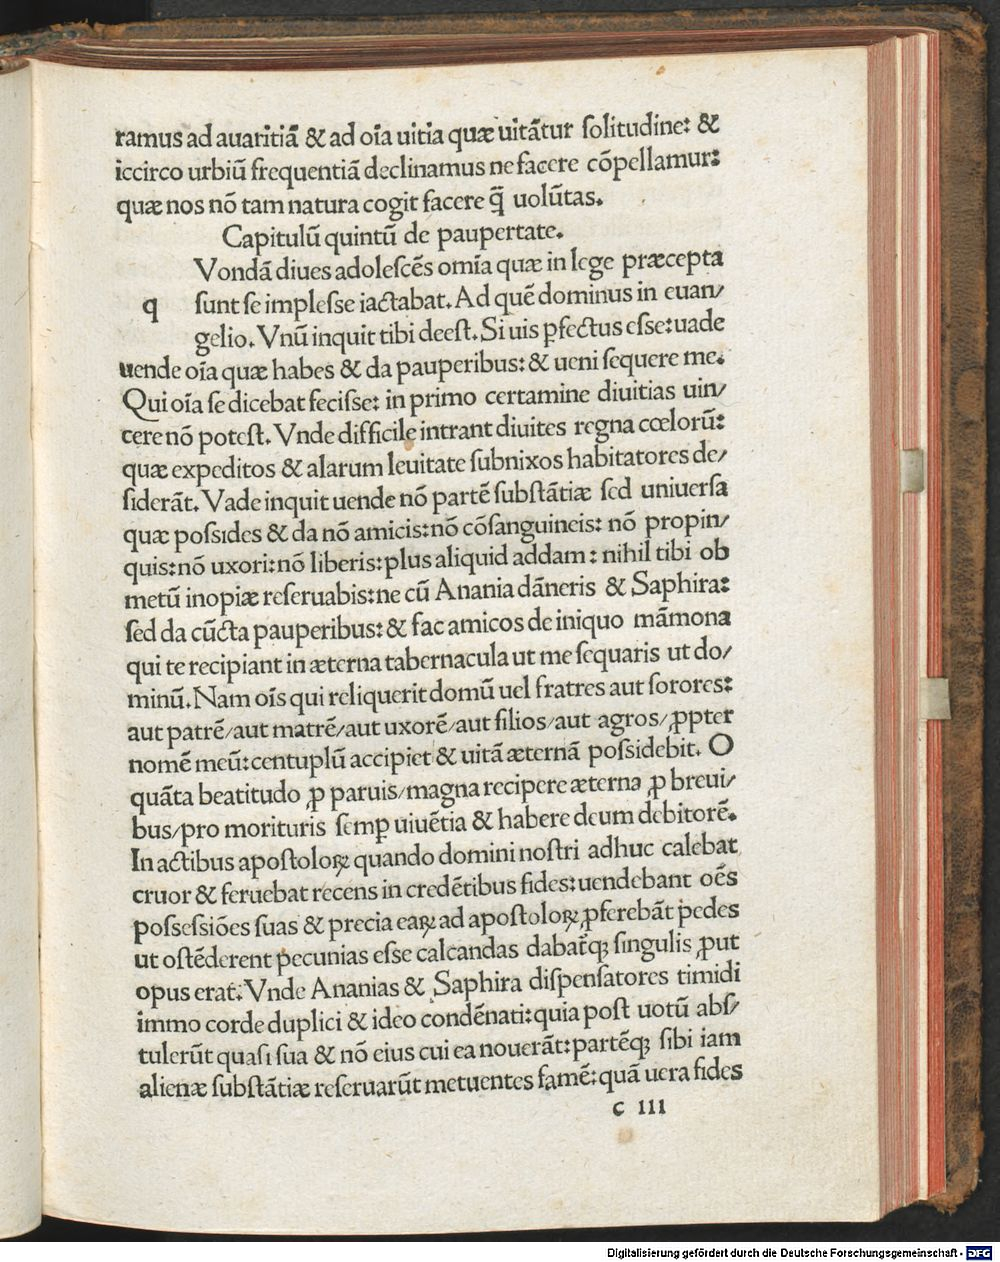 ramus ad auaritiā & ad oīa uitia quæ uitātur ſolitudine: &
iccirco urbiū frequentiā declinamus ne facere cōpellamur:
quæ nos nō tam natura cogit facere q̄ uolūtas.
Capitulū quintū de paupertate.
Vondā diues adoleſcēs omīa quæ in lege præcepta
q ſunt ſe impleſſe iactabat. Ad quē dominus in euan/
gelio. Vnū inquit tibi deeſt. Si uis ꝑfectus eſſe: uade
uende oīa quæ habes & da pauperibus: & ueni ſequere me.
Qui oīa ſe dicebat feciſſe: in primo certamine diuitias uin/
cere nō poteſt. Vnde difficile intrant diuites regna cœlorū:
quæ expeditos & alarum leuitate ſubnixos habitatores de/
ſiderāt. Vade inquit uende nō partē ſubſtātiæ ſed uniuerſa
quæ poſſides & da nō amicis: nō cōſanguineis: nō propin/
quis: nō uxori: nō liberis: plus aliquid addam: nihil tibi ob
metū inopiæ reſeruabis: ne cū Anania dāneris & Saphira:
ſed da cūcta pauperibus: & fac amicos de iniquo māmona
qui te recipiant in æterna tabernacula ut me ſequaris ut do/
minū. Nam oīs qui reliquerit domū uel fratres aut ſorores:
aut patrē/aut matrē/aut uxorē/aut filios/aut agros/ꝓpter
nomē meū: centuplū accipiet & uitā æternā poſſidebit. O
quāta beatitudo ꝓ paruis/magna recipere æterna ꝓ breui/
bus/pro morituris ſemꝑ uiuētia & habere deum debitorē.
In actibus apoſtoloꝝ quando domini noſtri adhuc calebat
cruor & feruebat recens in credētibus fides: uendebant oēs
poſſeſſiōes ſuas & precia eaꝝ ad apoſtoloꝝ ꝓferebāt pedes
ut oſtēderent pecunias eſſe calcandas dabāt́qꝫ ſingulis ꝓut
opus erat. Vnde Ananias & Saphira diſpenſatores timidi
immo corde duplici & ideo condēnati: quia poſt uotū abſ/
tulerūt quaſi ſua & nō eius cui ea nouerāt: partēqꝫ ſibi iam
alienæ ſubſtātiæ reſeruarūt metuentes famē: quā uera fides
c III
Digitalisierung gefördert durch die Deutsche Forschungsgemeinschaft - DFG